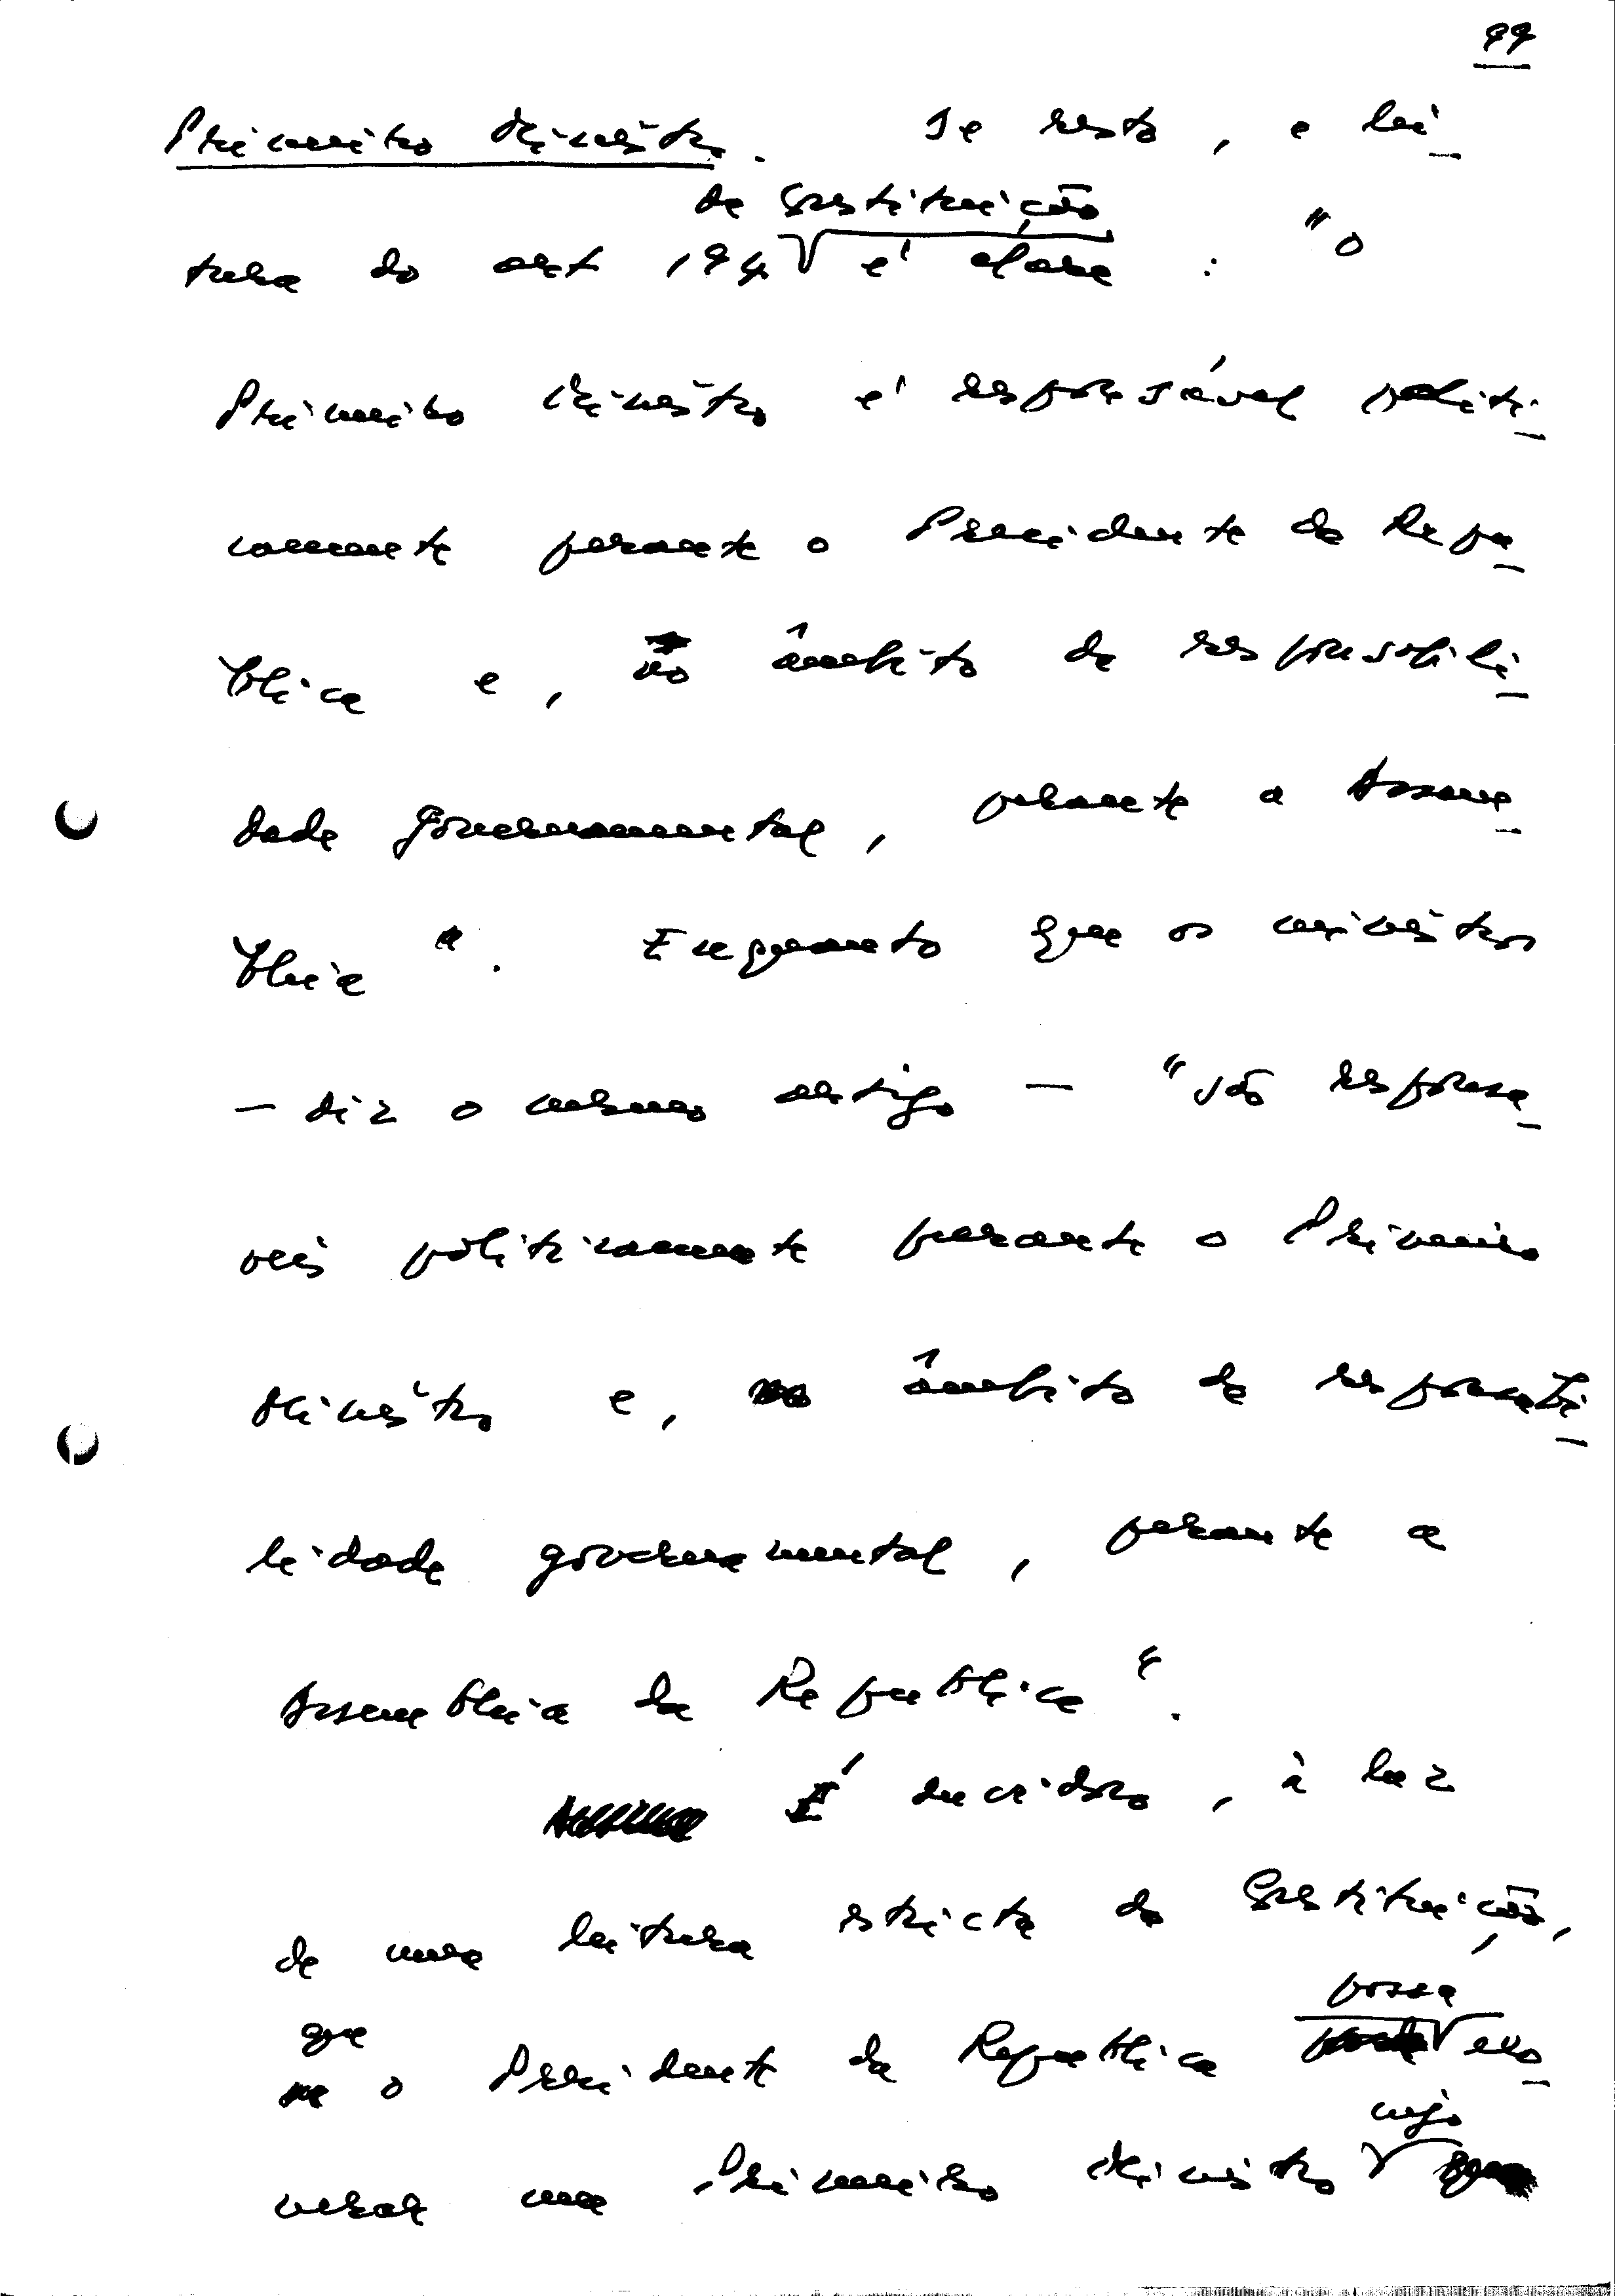 99
Primeiro Ministro. De resto, a lei
da Constituição
tura do art 194 é clara : "o
Primeiro Ministro é responsável politi-
camente perante o Presidente da Repu-
blica e, no âmbito da responsabili-
dade governamental, perante a Assem-
bleia". Enquanto que os ministros
— diz o mesmo artigo — "são responsa-
veis politicamente perante o Primeiro
Ministro e, no âmbito da responsabi-
lidade governamental, perante a
Assembleia da Republica".
É duvidoso, à luz
de uma leitura stricta da Constituição,
possa
que
o Presidente da Republica exo-
cujo
nerar um Primeiro Ministro